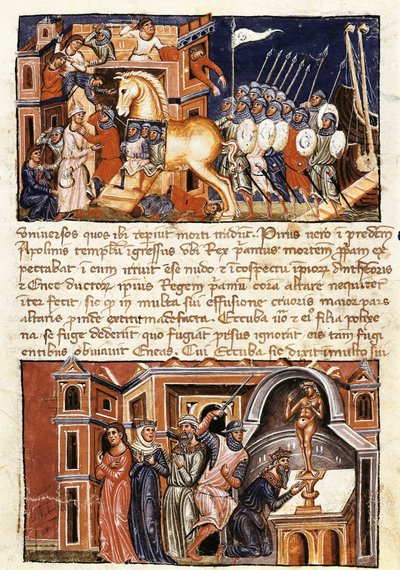 universos quos ibi repiut morti tradut. Pirus uero i predem
Apolinis templu igressus ubi Rex pamus mortem ex
pectabat i eum irruit ese nudo et i cospectu ipior Antheoris
et Enee ductor ipius Regem pamu cora altare nequiter
iter fecit sic q i multa sui effusione cruoris maior pars
altaris madefacta. Eccuba uo et ei filia polixe
na se fuge dederut quo fugiat psus ignorat eis tam fugi
entibus obuiauit Eneas. Cui Eccuba sic dixit imulto sui